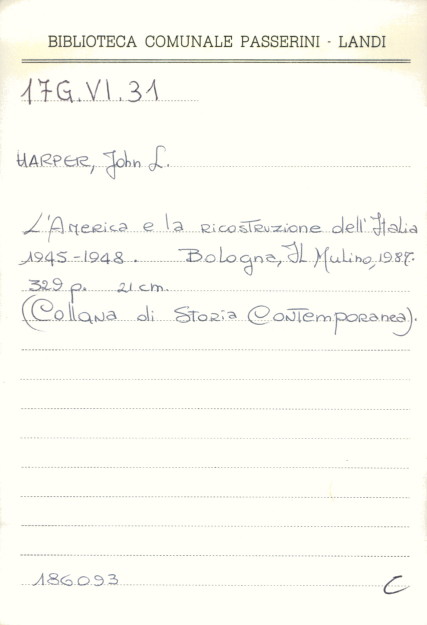 BIBLIOTECA COMUNALE PASSERINI - LANDI
17G.VI.31
HARPER, John L.
L'America e la ricostruzione dell'Italia
1945-1948. Bologna, Il Mulino, 1987.
329 p. 21 cm.
(Collana di Storia Contemporanea).
186093 C